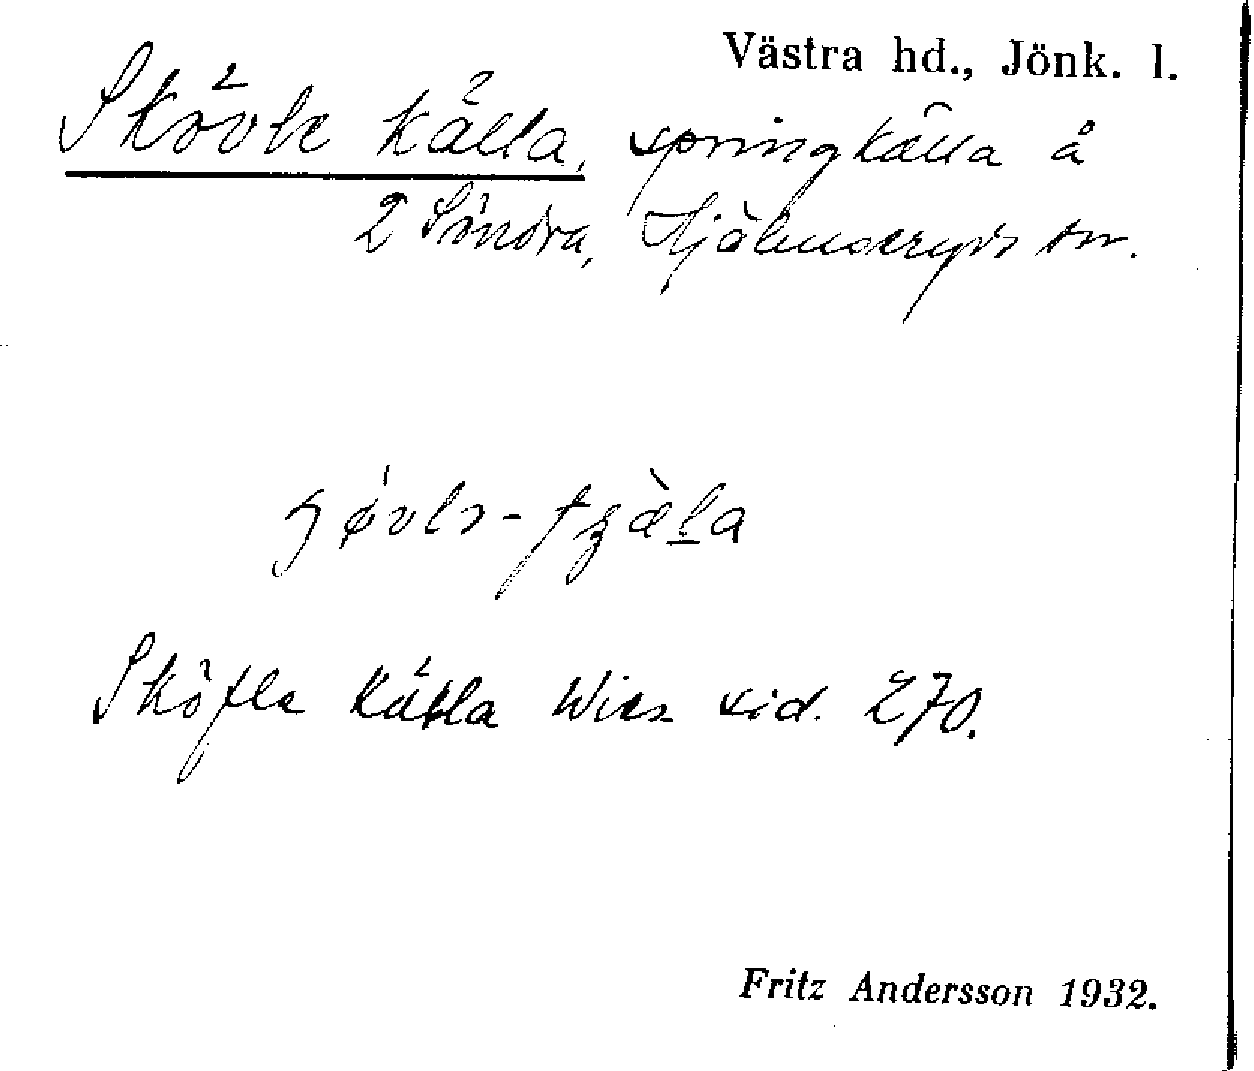 Västra hd., Jönk. l.
Skövle källa, springkälla å
2 Söndra, Hjälmseryds sn.
Sköfla källa Wies. sid. 270.
Fritz Andersson 1932.